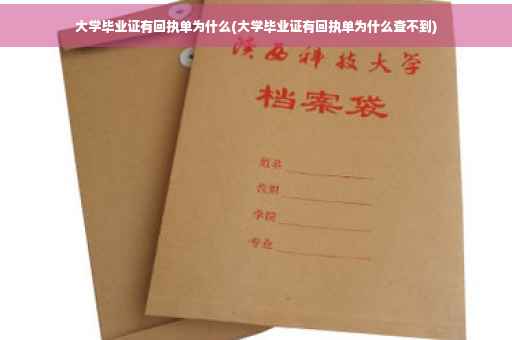 大学毕业证有回执单为什么(大学毕业证有回执单为什么查不到)
陕西科技大学
档案袋
姓名
性别
学院
专业